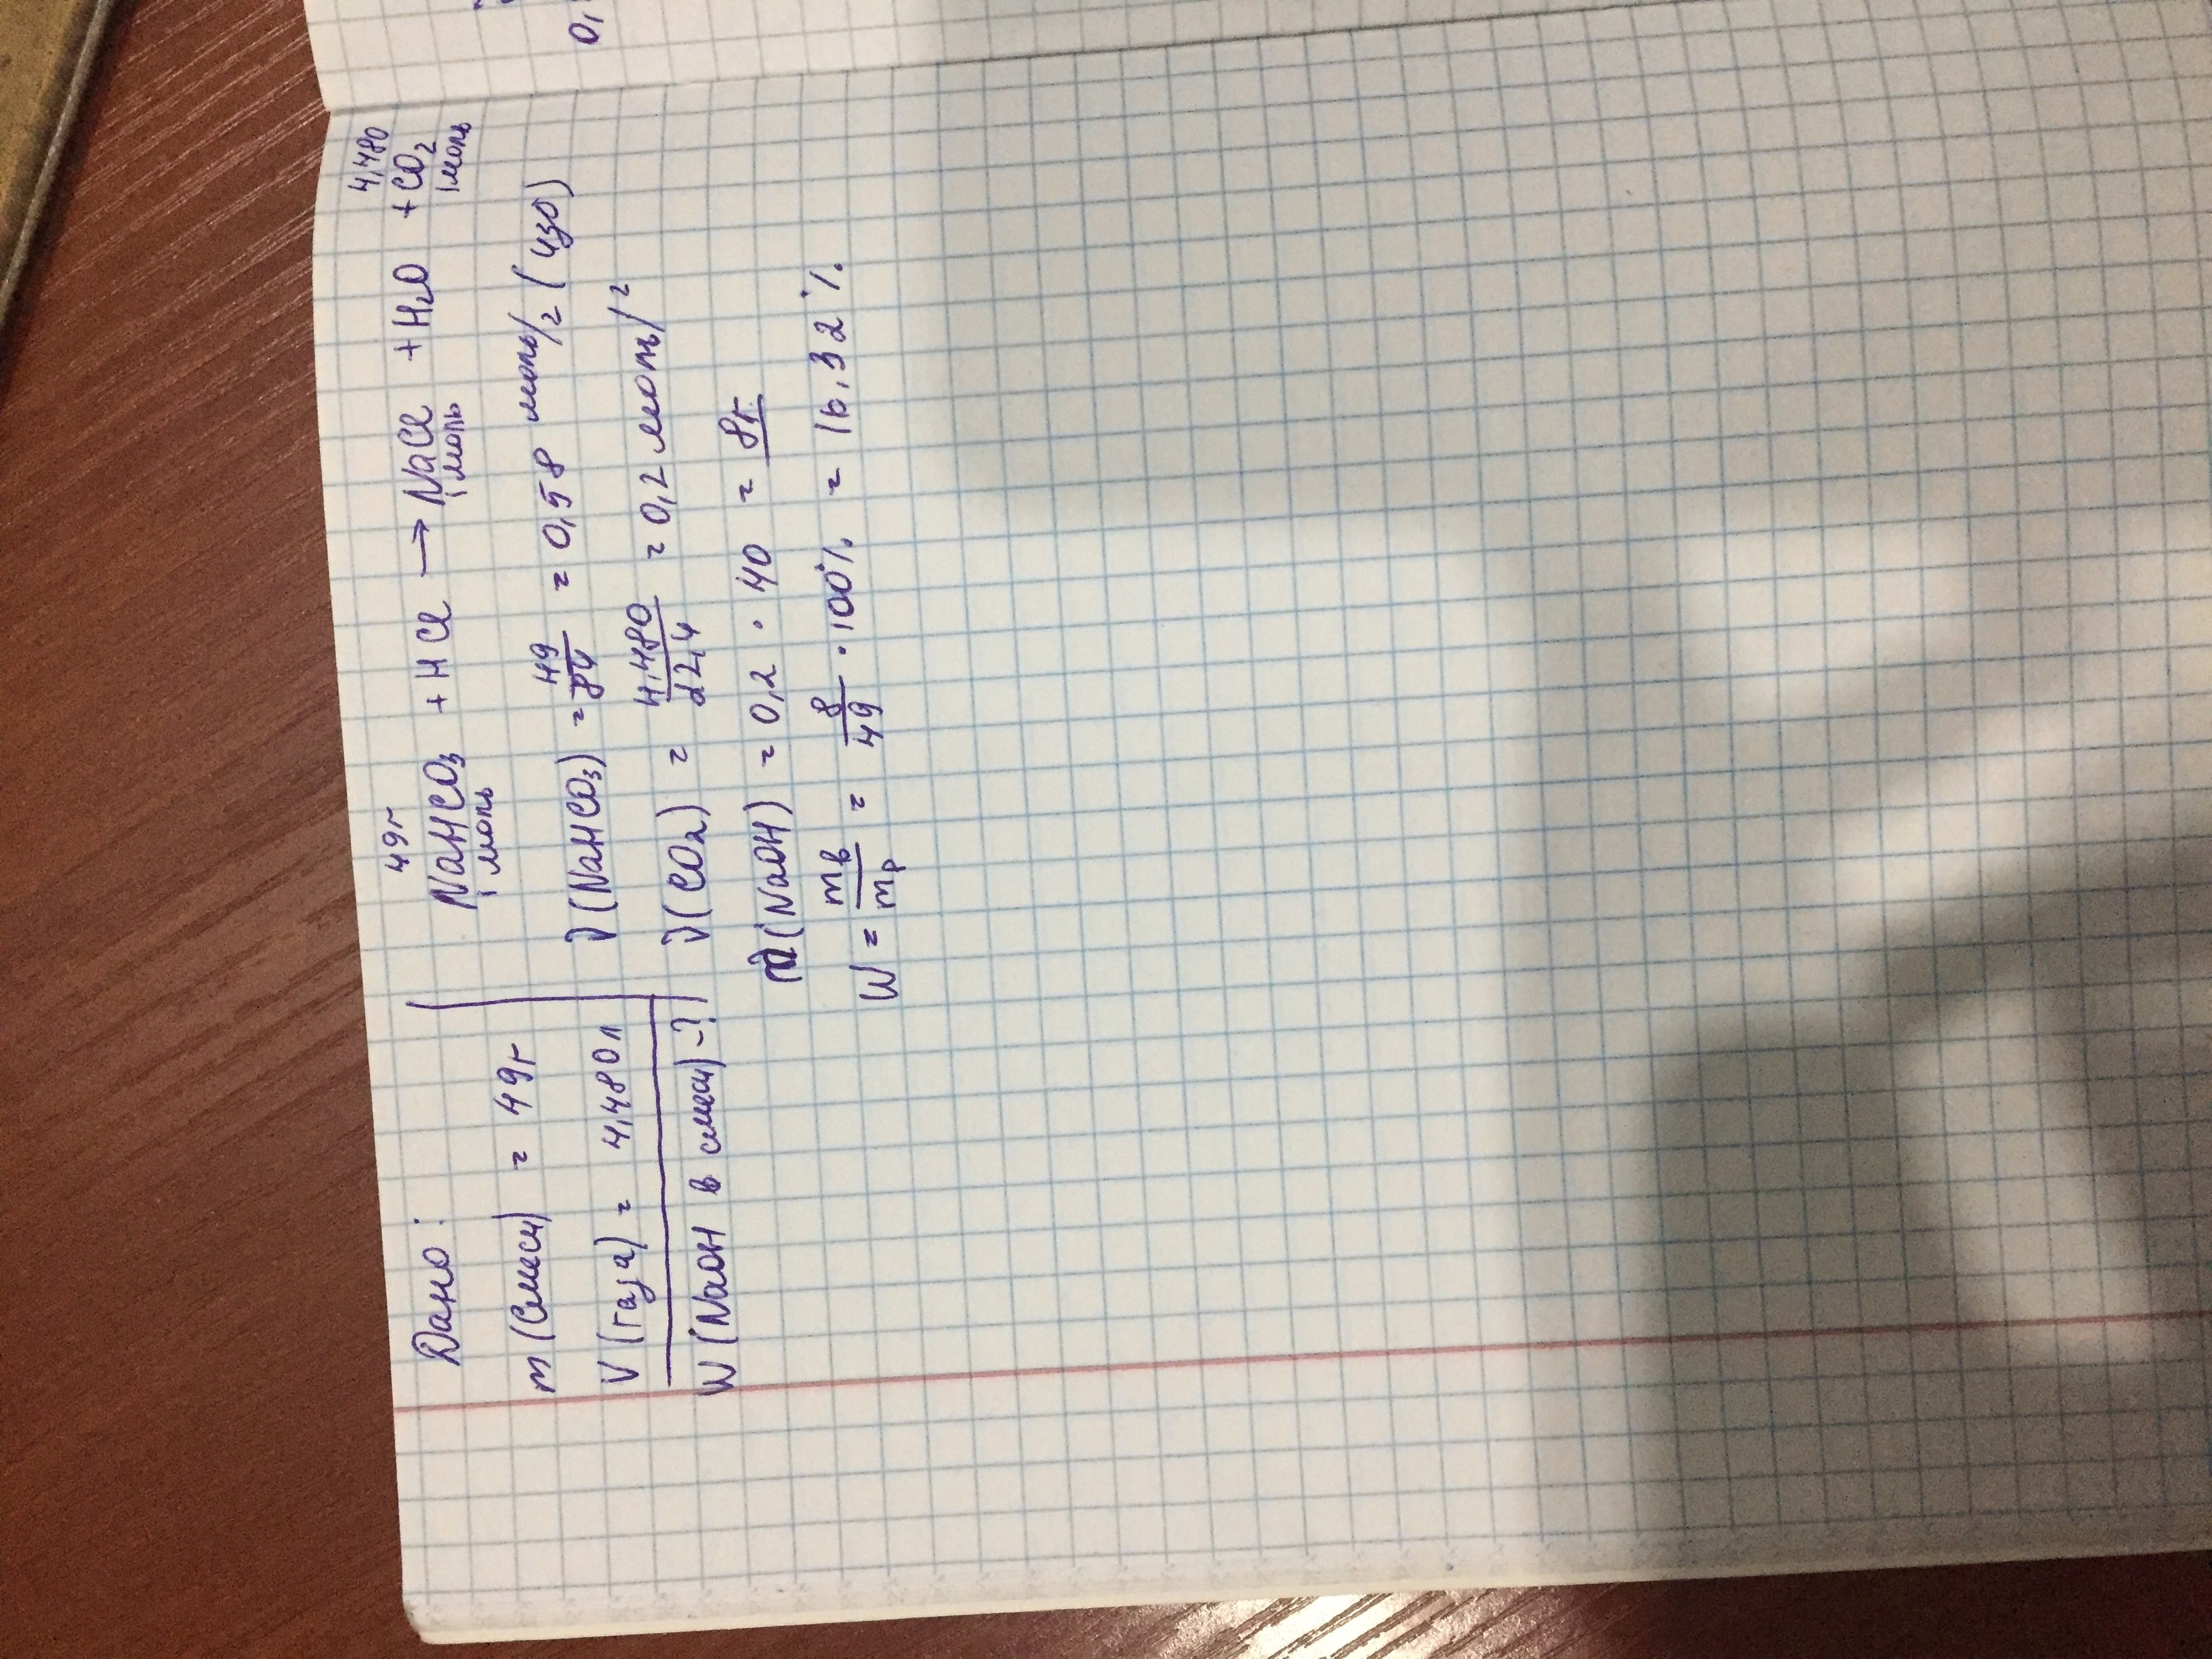 Дано:
m (смеси) = 49г
V (газа) = 4,480л
W (NaOH в смеси) -?
49г 4,480
NaHCO3 + HCl → NaCl + H2O + CO2
1моль 1моль 1моль
ν(NaHCO3) = 49/84 = 0,58 моль/г (изб)
ν(CO2) = 4,480/22,4 = 0,2 моль/г
m(NaOH) = 0,2 · 40 = 8г
W = mв/mр = 8/49 · 100% = 16,32%
0,